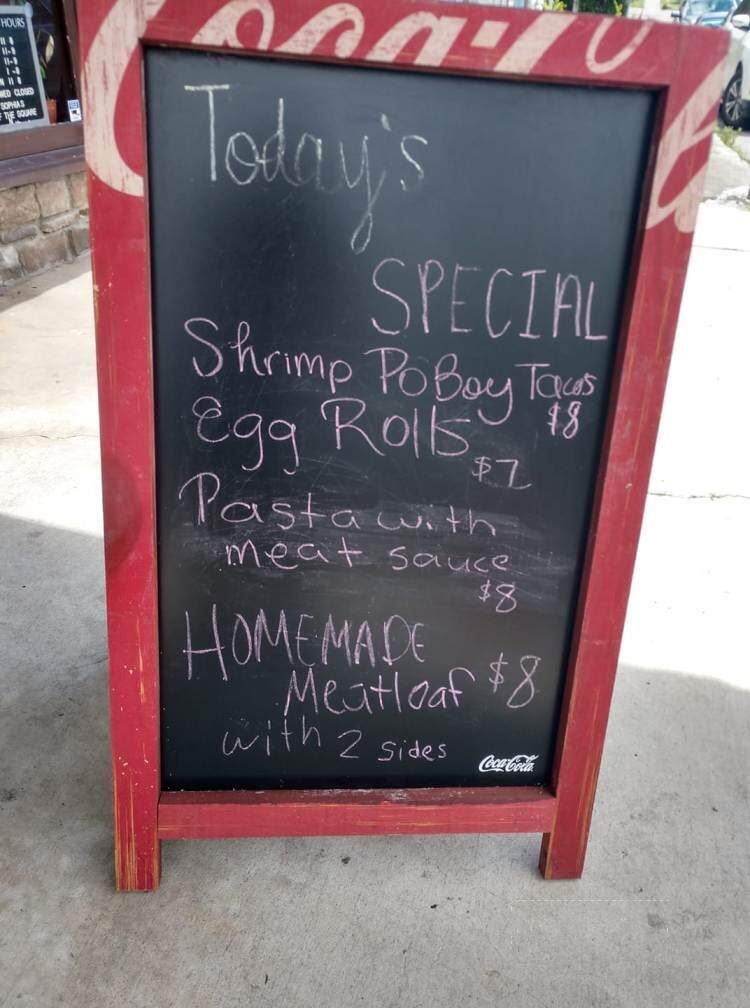 HOURS
11-8
11-8
1-8
11 8
CLOSED
SOPHIAS
THE SQUARE
Coca-Cola
Today's
SPECIAL
Shrimp PoBoy Tacos
$8
Egg Rolls
$7
Pasta with
meat sauce
$8
HOMEMADE
Meatloaf $8
with 2 sides
Coca-Cola